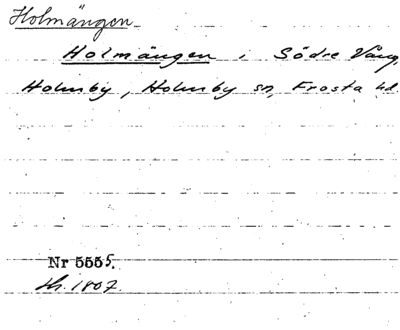 Holmängen
Holmängen i Södre Vång,
Holmby, Holmby sn, Frosta hd.
Nr 5555.
Sk. 1807